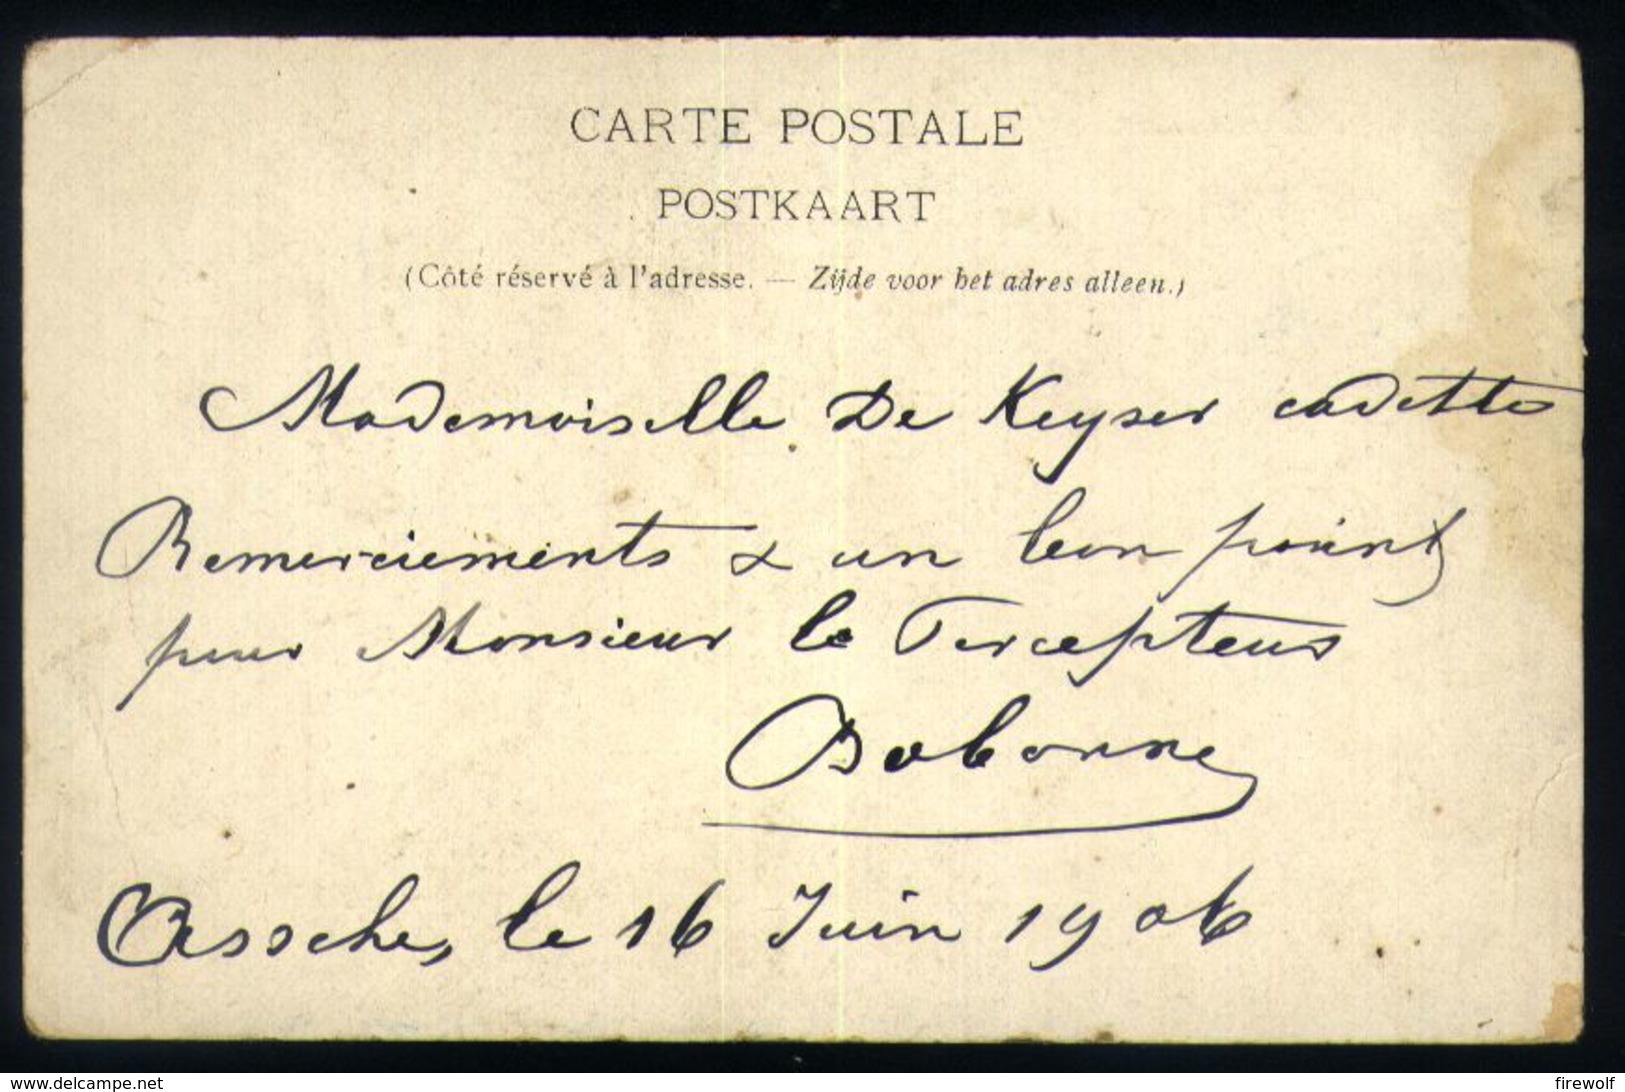 CARTE POSTALE
POSTKAART
(Côté réservé à l'adresse. — Zijde voor het adres alleen.)
Mademoiselle De Keyser cadette
Remerciements & un bon point
pour Monsieur le Percepteur
Bobonne
Assche, le 16 Juin 1906
www.delcampe.net
firewolf